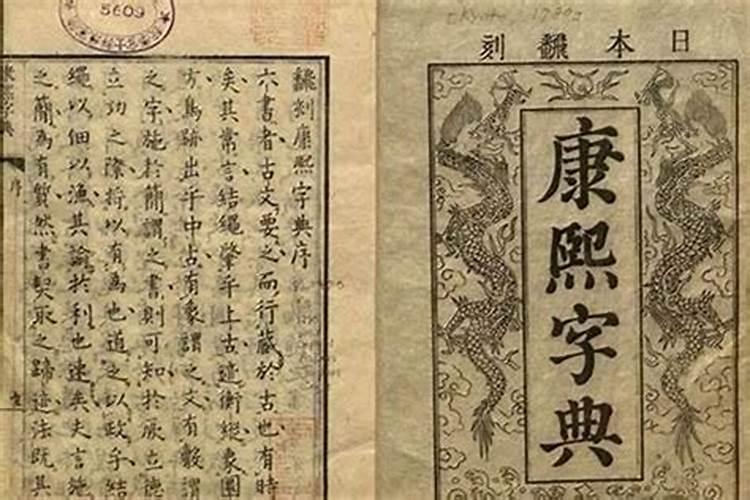 日本飜刻
康熙字典
飜刻康熙字典序
六書者古文要之而行藏於古也有時
矣其常言結繩肇乎上古遺衡縱象圓
方鳥跡出乎中古有象謂之文有數謂
之字施於簡謂之書則可知於厥立德
立功之際将以有為也道之以政乎結
繩以佃以漁其諭於利也速矣夫言施
之簡為有質然書契取之蹄迹法既具
字典
序
5609